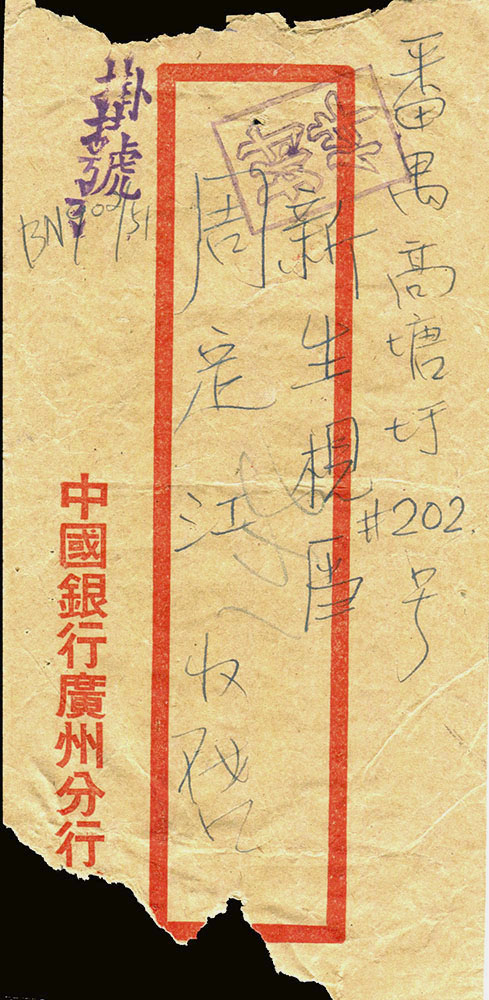 番禺高塘圩#202号
新生
周定江 收啓
掛號
BN900/51
中國銀行廣州分行